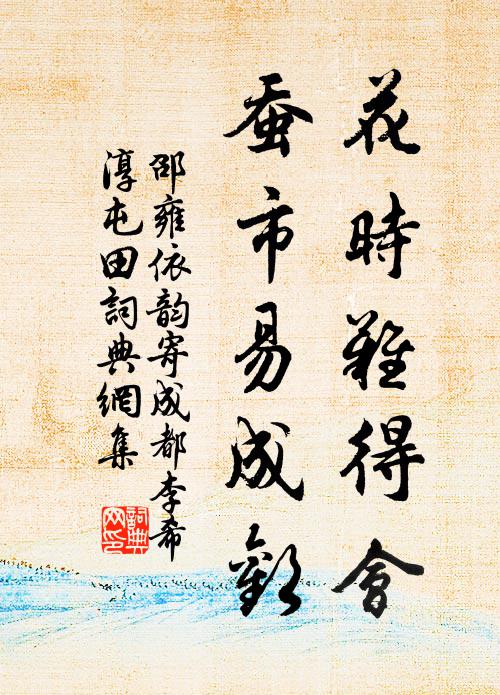 花時難得會
蚕市易成歡
邵雍依韵寄成都李希
淳屯田詞典網集
詞典
网印